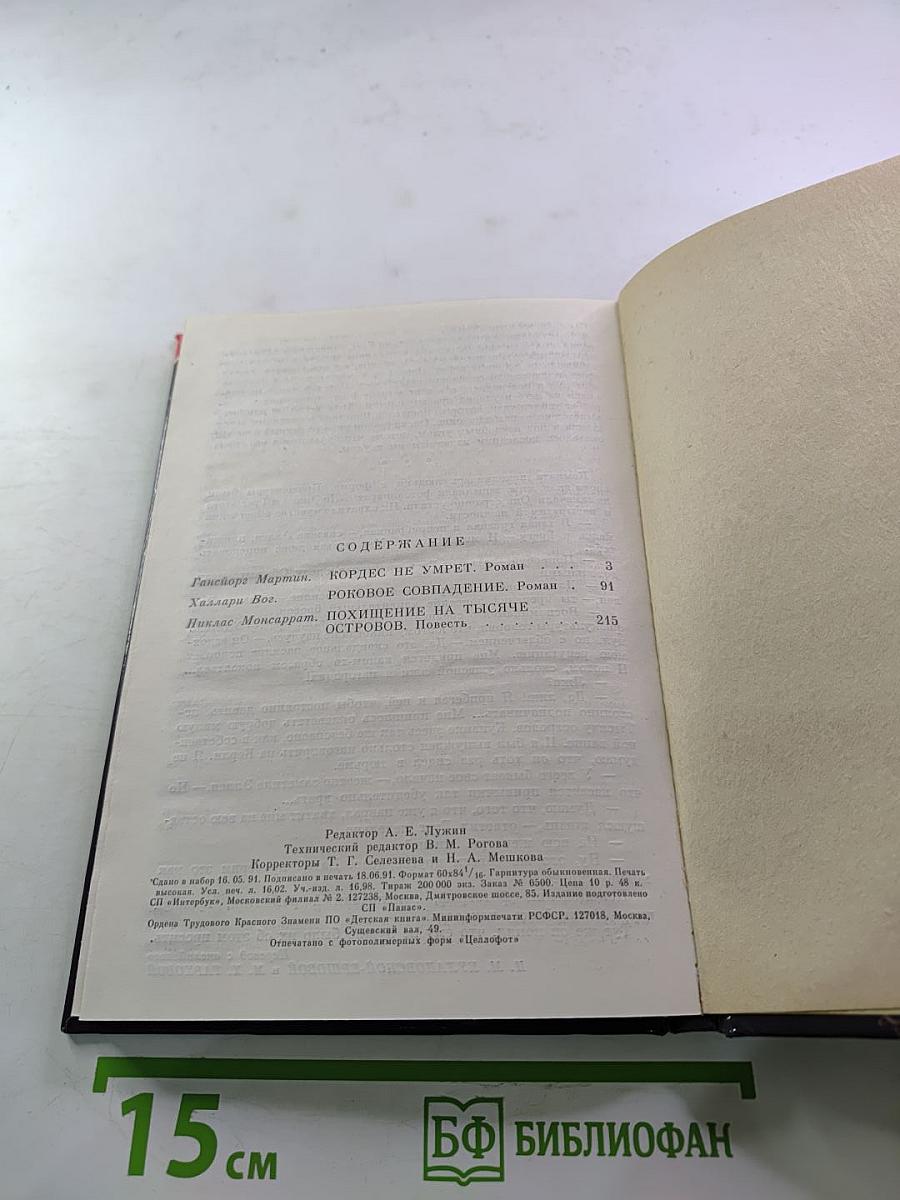 СОДЕРЖАНИЕ
Гансйорг Мартин. КОРДЕС НЕ УМРЕТ. Роман . . . 3
Халлари Вог. РОКОВОЕ СОВПАДЕНИЕ. Роман . 91
Никлас Монсаррат. ПОХИЩЕНИЕ НА ТЫСЯЧЕ
ОСТРОВОВ. Повесть . . . . . . . 215
Редактор А. Е. Лужин
Технический редактор В. М. Рогова
Корректоры Т. Г. Селезнева и Н. А. Мешкова
Сдано в набор 16. 05. 91. Подписано в печать 18.06.91. Формат 60х84¹/₁₆. Гарнитура обыкновенная. Печать
высокая. Усл. печ. л. 16,02. Уч.-изд. л. 16,98. Тираж 200 000 экз. Заказ № 6500. Цена 10 р. 48 к.
СП «Интербук», Московский филиал № 2. 127238, Москва, Дмитровское шоссе, 85. Издание подготовлено
СП «Панас».
Ордена Трудового Красного Знамени ПО «Детская книга». Мининформпечати РСФСР. 127018, Москва,
Сущевский вал, 49.
Отпечатано с фотополимерных форм «Целлофот»
15 см
БФ БИБЛИОФАН